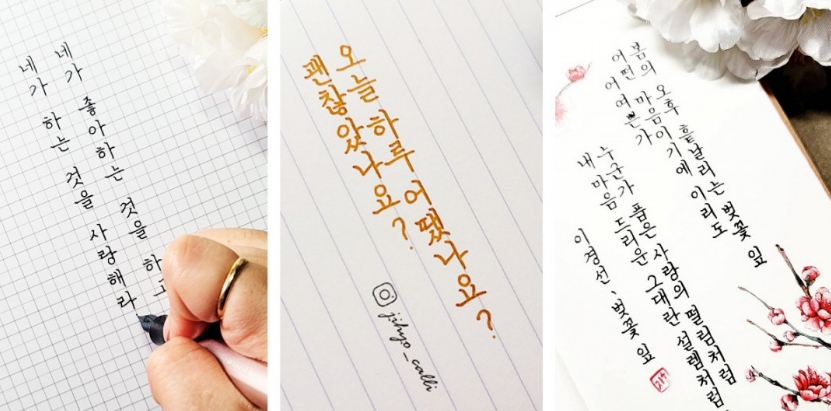 네가 좋아하는 것을 하고
네가 하는 것을 사랑해라
오늘 하루 어땠나요?
괜찮았나요?
jihyo_calli
봄의 오후 흩날리는 벚꽃 잎
어떤 마음이기에 이리도
어여쁜가
누군가 품은 사랑의 떨림처럼
내 마음 드리운 그대란 설렘처럼
이경선, 벚꽃 잎